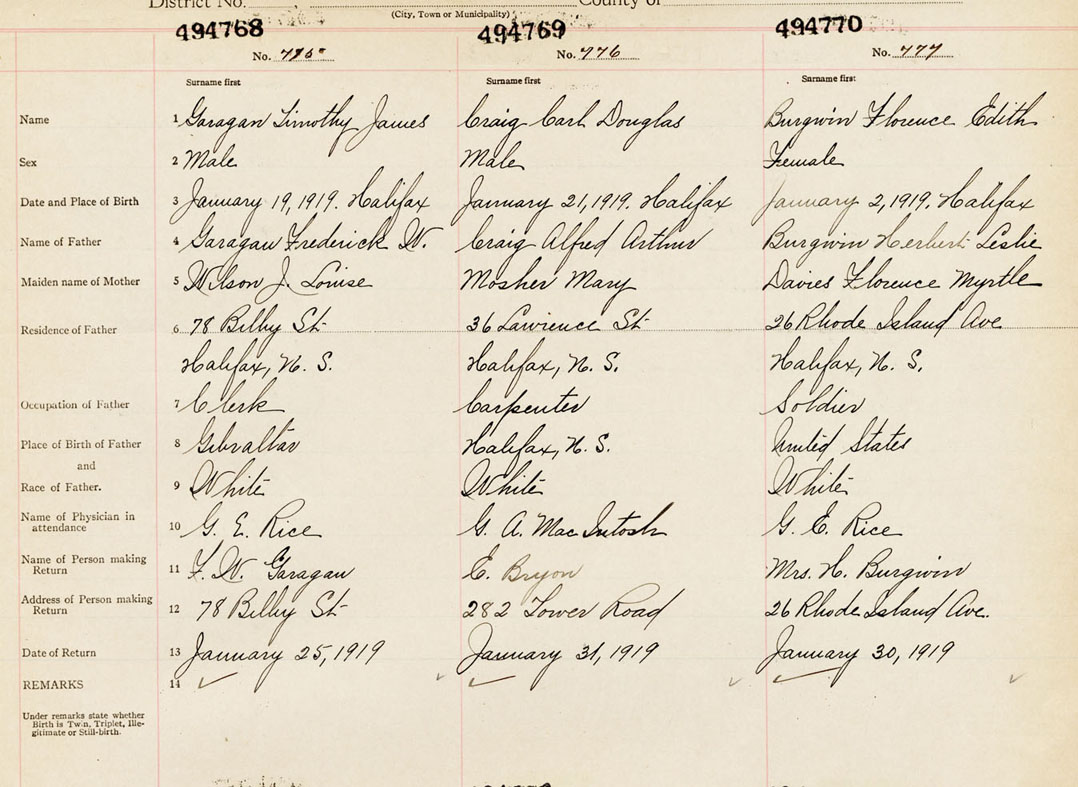 District No. , County of
(City, Town or Municipality)
494768 494769 494770
No. 775 No. 776 No. 777
Surname first Surname first Surname first
Name 1 Garagan Timothy James Craig Carl Douglas Burgwin Florence Edith
Sex 2 Male Male Female
Date and Place of Birth 3 January 19, 1919. Halifax January 21, 1919. Halifax January 2, 1919. Halifax
Name of Father 4 Garagan Frederick W. Craig Alfred Arthur Burgwin Herbert Leslie
Maiden name of Mother 5 Wilson J. Louise Mosher Mary Davies Florence Myrtle
Residence of Father 6 78 Bilby St 36 Lawrence St 26 Rhode Island Ave
Halifax, N. S. Halifax, N. S. Halifax, N. S.
Occupation of Father 7 Clerk Carpenter Soldier
Place of Birth of Father 8 Gibraltar Halifax, N. S. United States
and
Race of Father. 9 White White White
Name of Physician in attendance 10 G. E. Rice G. A. MacIntosh G. E. Rice
Name of Person making Return 11 F. W. Garagan E. Bryon Mrs. H. Burgwin
Address of Person making Return 12 78 Bilby St 282 Tower Road 26 Rhode Island Ave.
Date of Return 13 January 25, 1919 January 31, 1919 January 30, 1919
REMARKS 14
Under remarks state whether
Birth is Twin, Triplet, Ille-
gitimate or Still-birth.